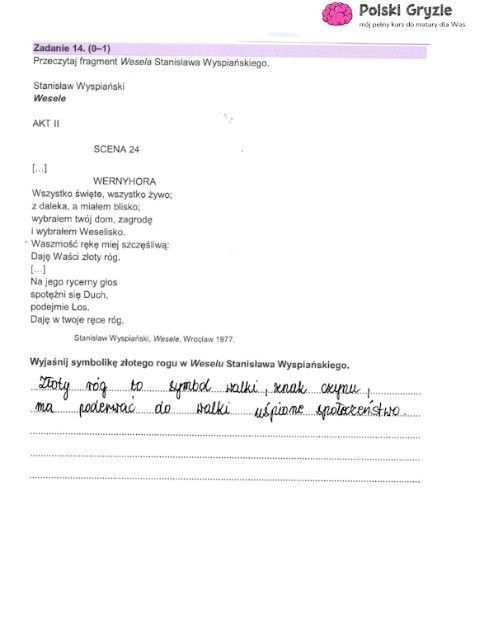 Polski Gryzie
mój pełny kurs do matury dla Was
Zadanie 14. (0–1)
Przeczytaj fragment Wesela Stanisława Wyspiańskiego.
Stanisław Wyspiański
Wesele
AKT II
SCENA 24
[...]
WERNYHORA
Wszystko święte, wszystko żywo;
z daleka, a miałem blisko;
wybrałem twój dom, zagrodę
i wybrałem Weselisko.
Waszmość rękę miej szczęśliwą:
Daję Waści złoty róg.
[...]
Na jego rycerny głos
spotężni się Duch,
podejmie Los.
Daję w twoje ręce róg.
Stanisław Wyspiański, Wesele, Wrocław 1977.
Wyjaśnij symbolikę złotego rogu w Weselu Stanisława Wyspiańskiego.
Złoty róg to symbol walki, znak czynu,
ma poderwać do walki uśpione społeczeństwo.